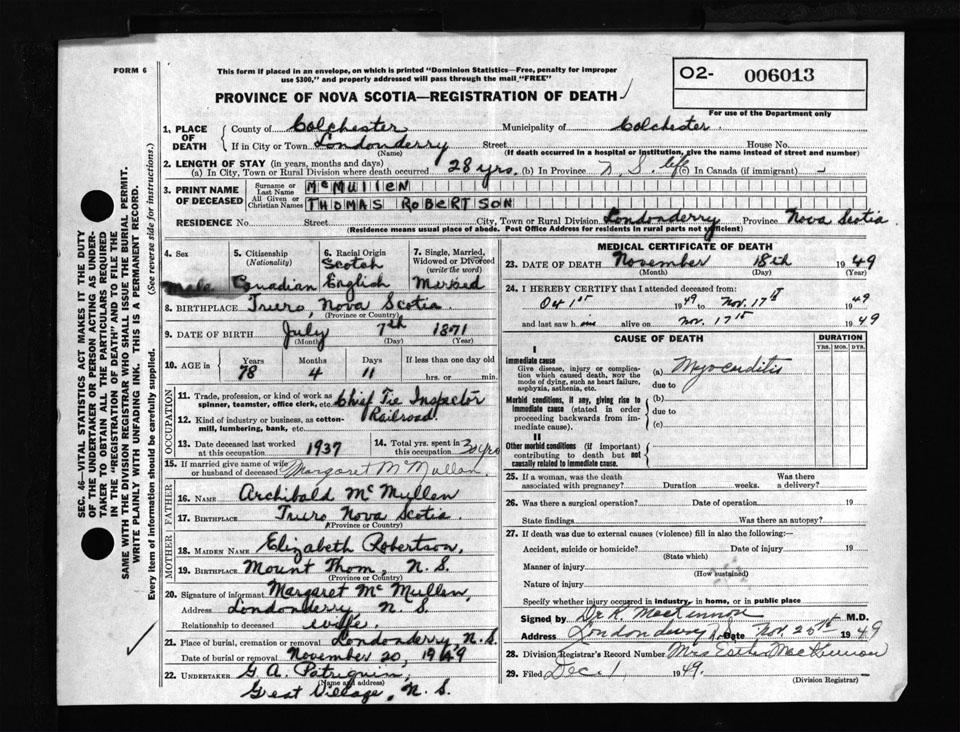 FORM 6
This form if placed in an envelope, on which is printed "Dominion Statistics—Free, penalty for improper
use $300," and properly addressed will pass through the mail "FREE"
O2- 006013
PROVINCE OF NOVA SCOTIA—REGISTRATION OF DEATH
For use of the Department only
1. PLACE OF DEATH County of Colchester Municipality of Colchester
If in City or Town Londonderry Street House No.
(Name) (If death occurred in a hospital or institution, give the name instead of street and number)
2. LENGTH OF STAY (in years, months and days)
(a) In City, Town or Rural Division where death occurred 28 yrs. (b) In Province N.S. life (c) In Canada (if immigrant)
3. PRINT NAME OF DECEASED Surname or Last Name McMULLEN
All Given or Christian Names THOMAS ROBERTSON
RESIDENCE No. Street City, Town or Rural Division Londonderry Province Nova Scotia
(Residence means usual place of abode. Post Office Address for residents in rural parts not sufficient)
4. Sex 5. Citizenship (Nationality) 6. Racial Origin 7. Single, Married, Widowed or Divorced (write the word)
Scotch
male Canadian English Married
8. BIRTHPLACE Truro, Nova Scotia
(Province or Country)
9. DATE OF BIRTH July 7th 1871
(Month) (Day) (Year)
10. AGE in Years Months Days If less than one day old
78 4 11 hrs. or min.
OCCUPATION
11. Trade, profession, or kind of work as spinner, teamster, office clerk, etc. Chief Tie Inspector
12. Kind of industry or business, as cotton-mill, lumbering, bank, etc. Railroad
13. Date deceased last worked at this occupation 1937 14. Total yrs. spent in this occupation 30 yrs
15. If married give name of wife or husband of deceased Margaret McMullen
FATHER
16. NAME Archibald McMullen
17. BIRTHPLACE Truro Nova Scotia
(Province or Country)
MOTHER
18. MAIDEN NAME Elizabeth Robertson,
19. BIRTHPLACE Mount Thom, N.S.
(Province or Country)
20. Signature of informant Margaret McMullen,
Address Londonderry N.S.
Relationship to deceased wife
21. Place of burial, cremation or removal Londonderry N.S.
Date of burial or removal November 20, 1949
22. UNDERTAKER G A. Patriquin,
(Name and address)
Great Village, N.S.
MEDICAL CERTIFICATE OF DEATH
23. DATE OF DEATH November 18th 1949
(Month) (Day) (Year)
24. I HEREBY CERTIFY that I attended deceased from:
Oct 1st 1949 to Nov. 17th 1949
and last saw him alive on Nov. 17th 1949
CAUSE OF DEATH DURATION
YRS. MOS. DYS.
I
Immediate cause
Give disease, injury or complication which caused death, not the mode of dying, such as heart failure, asphyxia, asthenia, etc.
(a) Myocarditis
due to
Morbid conditions, if any, giving rise to immediate cause (stated in order proceeding backwards from immediate cause).
(b)
due to
(c)
II
Other morbid conditions (if important) contributing to death but not causally related to immediate cause.
25. If a woman, was the death associated with pregnancy? Duration weeks. Was there a delivery?
26. Was there a surgical operation? Date of operation 19
State findings Was there an autopsy?
27. If death was due to external causes (violence) fill in also the following:—
Accident, suicide or homicide? Date of injury 19
(State which)
Manner of injury
(How sustained)
Nature of injury
Specify whether injury occurred in industry, in home, or in public place
Signed by Dr R MacKinnon M.D.
Address Londonderry Date Nov. 20th 1949
28. Division Registrar's Record Number Mrs Esther MacKinnon
29. Filed Dec 1 1949.
(Division Registrar)
SEC. 46—VITAL STATISTICS ACT MAKES IT THE DUTY
OF THE UNDERTAKER OR PERSON ACTING AS UNDER-
TAKER TO OBTAIN ALL THE PARTICULARS REQUIRED
IN THE "REGISTRATION OF DEATH" AND TO FILE THE
SAME WITH THE DIVISION REGISTRAR WHO SHALL ISSUE THE BURIAL PERMIT.
WRITE PLAINLY WITH UNFADING INK. THIS IS A PERMANENT RECORD.
Every item of information should be carefully supplied. (See reverse side for instructions.)